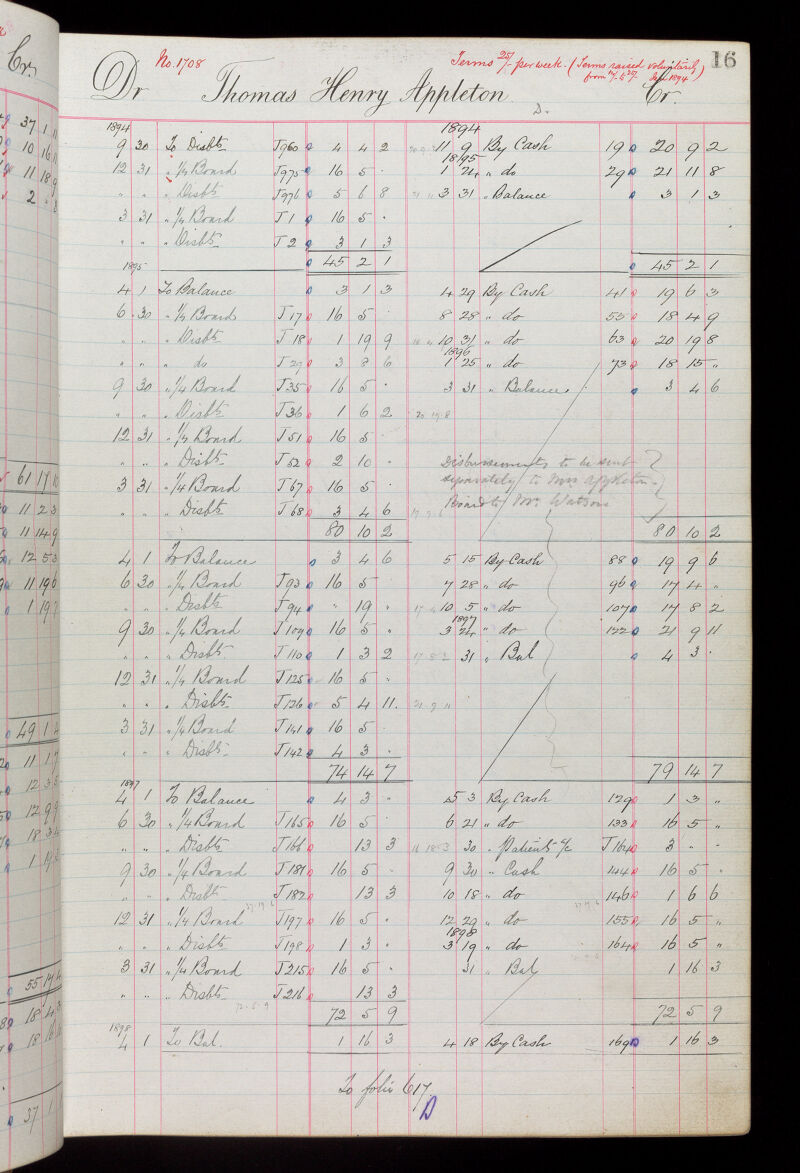 16
No. 1708
Terms 25/- per week. (Terms raised voluntarily
from to 25/- 1894)
Dr Thomas Henry Appleton Cr.
D.
1894 1894
9 30 To Disbts J960 4 4 2 11 9 By Cash 19 20 9 2
1895
12 31 " 1/4 Board J975 16 5 . 1 24 " do 29 21 11 8
" " " Disbts J976 5 6 8 3 31 " Balance 3 1 3
3 31 " 1/4 Board J1 16 5 .
" " " Disbts J2 3 1 3
45 2 1 45 2 1
1895
4 1 To Balance 3 1 3 4 29 By Cash 41 19 6 3
6 30 " 1/4 Board J17 16 5 . 8 28 " do 55 18 4 9
" " " Disbts J18 1 19 9 10 31 " do 63 20 19 8
1896
" " " do J29 3 8 6 1 25 " do 73 18 15 "
9 30 " 1/4 Board J35 16 5 . 3 31 " Balance 3 4 6
" " " Disbts J36 1 6 2 20 19 8
12 31 " 1/4 Board J51 16 5 .
" " " Disbt J52 2 10 . Disbursements to be sent
3 31 " 1/4 Board J67 16 5 . separately to Mrs Appleton.
" " " Disbts J68 3 4 6 Board to Mr Watson
80 10 2 80 10 2
4 1 To Balance 3 4 6 5 15 By Cash 88 19 9 6
6 30 " 1/4 Board J93 16 5 7 28 " do 96 17 4 "
" " " Disbts J94 " 19 . 10 5 " do 107 17 8 2
1897
9 30 " 1/4 Board J109 16 5 . 3 24 " do 122 21 9 11
" " " Disbts J110 1 3 2 17 8 2 31 " Bal 4 3 .
12 31 " 1/4 Board J125 16 5 .
" " " Disbts J126 5 4 11. 21 9 11
3 31 " 1/4 Board J141 16 5 .
" " " Disbts J142 4 3 .
74 14 7 79 14 7
1897
4 1 To Balance 4 3 . 5 3 By Cash 129 1 3 "
6 30 " 1/4 Board J165 16 5 . 6 21 " do 133 16 5 "
" " " Disbts J166 13 3 16 18 3 30 " Patients a/c J164 3 " .
9 30 " 1/4 Board J181 16 5 . 9 30 " Cash 144 16 5 .
" " " Disbt J182 13 3 10 18 " do 146 1 6 6
12 31 " 1/4 Board J197 16 5 . 12 29 " do 155 16 5 "
1898
" " " Disbts J198 1 3 . 3 19 " do 164 16 5 "
3 31 " 1/4 Board J215 16 5 . 31 " Bal 1 16 3
" " " Disbts J216 13 3
72 5 9 72 5 9
1898
4 1 To Bal. 1 16 3 4 18 By Cash 169 1 16 3
To folio 617
D